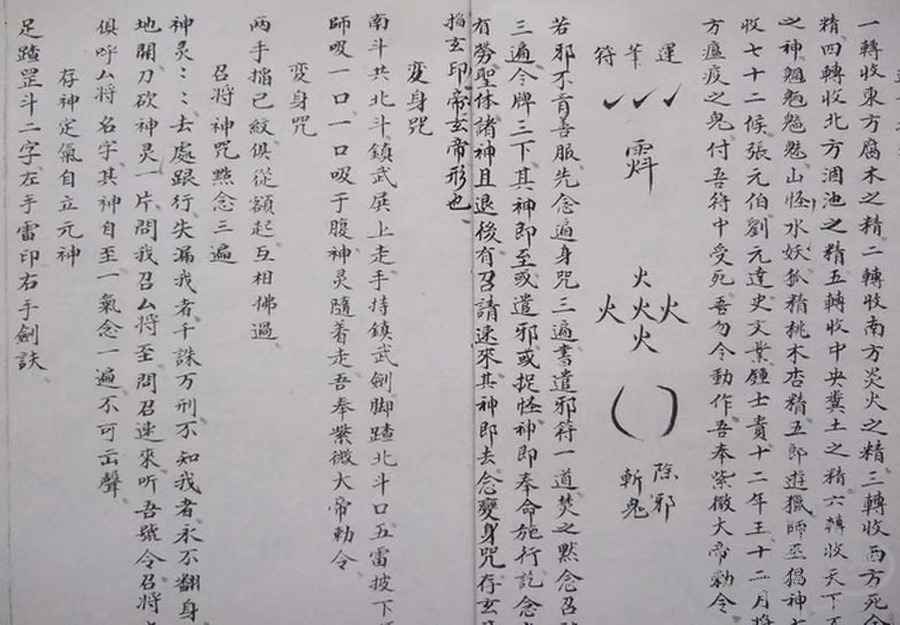 一轉收東方腐木之精二轉收南方炎火之精三轉收西方死金
精四轉收北方涸池之精五轉收中央糞土之精六轉收天下
之神魈魁魑魅山怪水妖狐精桃木杏精五郎遊獵師巫猖神
收七十二候張元伯劉元達史文業鍾士貴十二年王十二月將
方瘟疫之鬼付吾符中受死吾勿令動作吾奉紫微大帝勑令
運筆符
火
火火火
火
除邪
斬鬼
若邪不肯善服先念遍身咒三遍書遣邪符一道焚之默念召
三遍令牌三下其神即至或遣邪或捉怪神即奉命施行訖念
有勞聖体諸神且退後有召請速來其神即去念變身咒存玄
搯玄印帝玄帝形也
変身咒
南斗共北斗鎮武屍上走手持鎮武劍脚踏北斗口五雷披下
師吸一口一口吸于腹神灵隨着走吾奉紫微大帝勅令
変身咒
两手搯己紋俱從額起互相拂過
召將神咒點念三遍
神灵〻去處跟行失漏我者千誅万刑不知我者永不翻身
地開刀砍神灵一片問我召厶將至問召速來听吾號令召將
俱呼厶將名字其神自至一氣念一遍不可出聲
存神定氣自立元神
足踏罡斗二字左手雷印右手劍訣